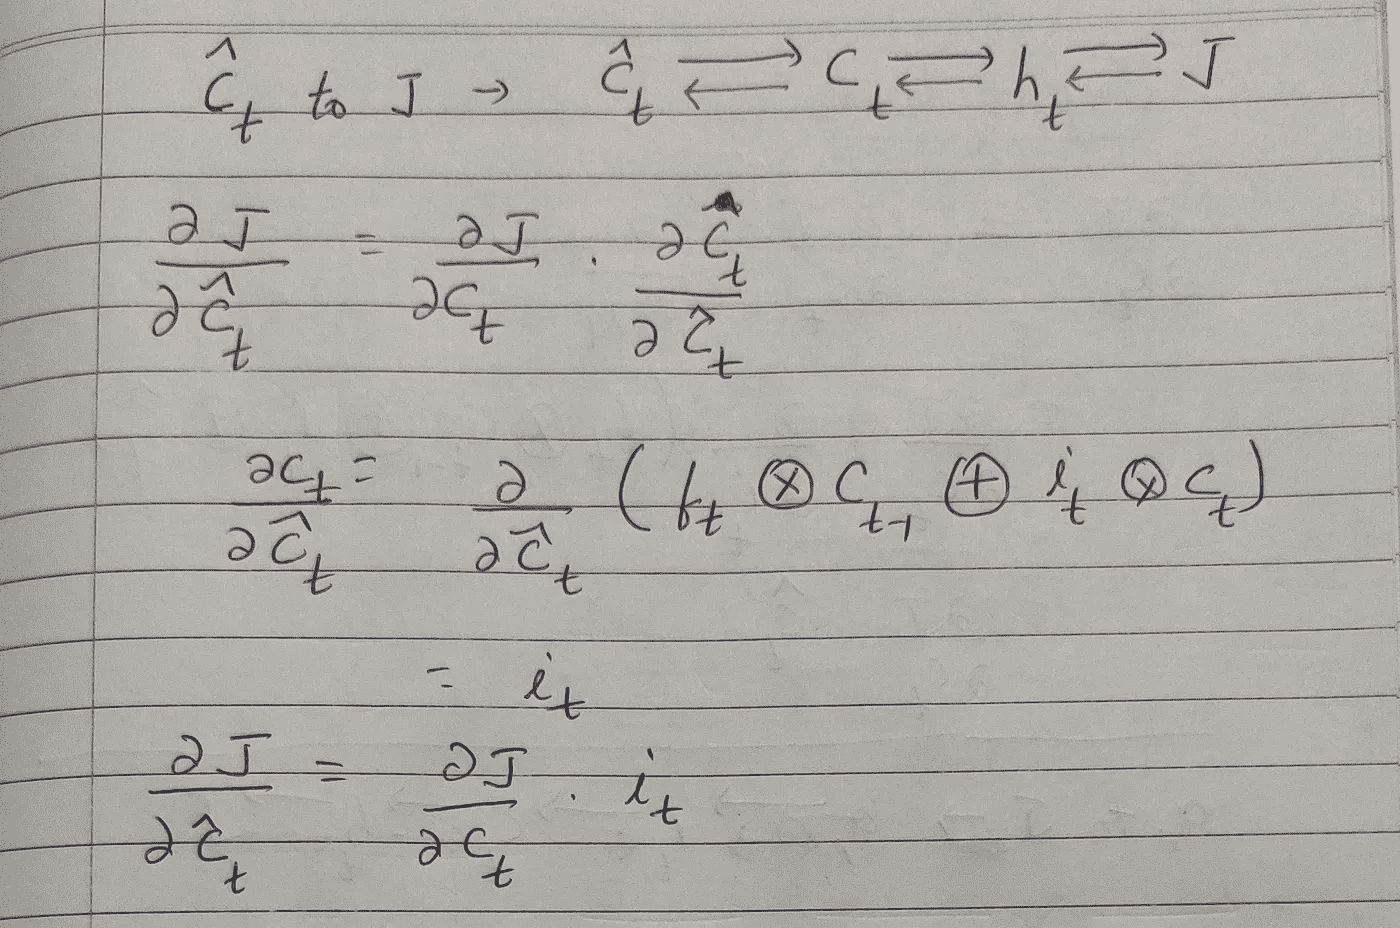 Ĉ_t to J → Ĉ_t ⇄ C_t ⇄ h_t ⇄ J
∂J/∂Ĉ_t = ∂J/∂C_t · ∂C_t/∂Ĉ_t
∂C_t/∂Ĉ_t = ∂/∂Ĉ_t (f_t ⊗ C_{t-1} ⊕ i_t ⊗ C_t)
= i_t
∂J/∂Ĉ_t = ∂J/∂C_t · i_t